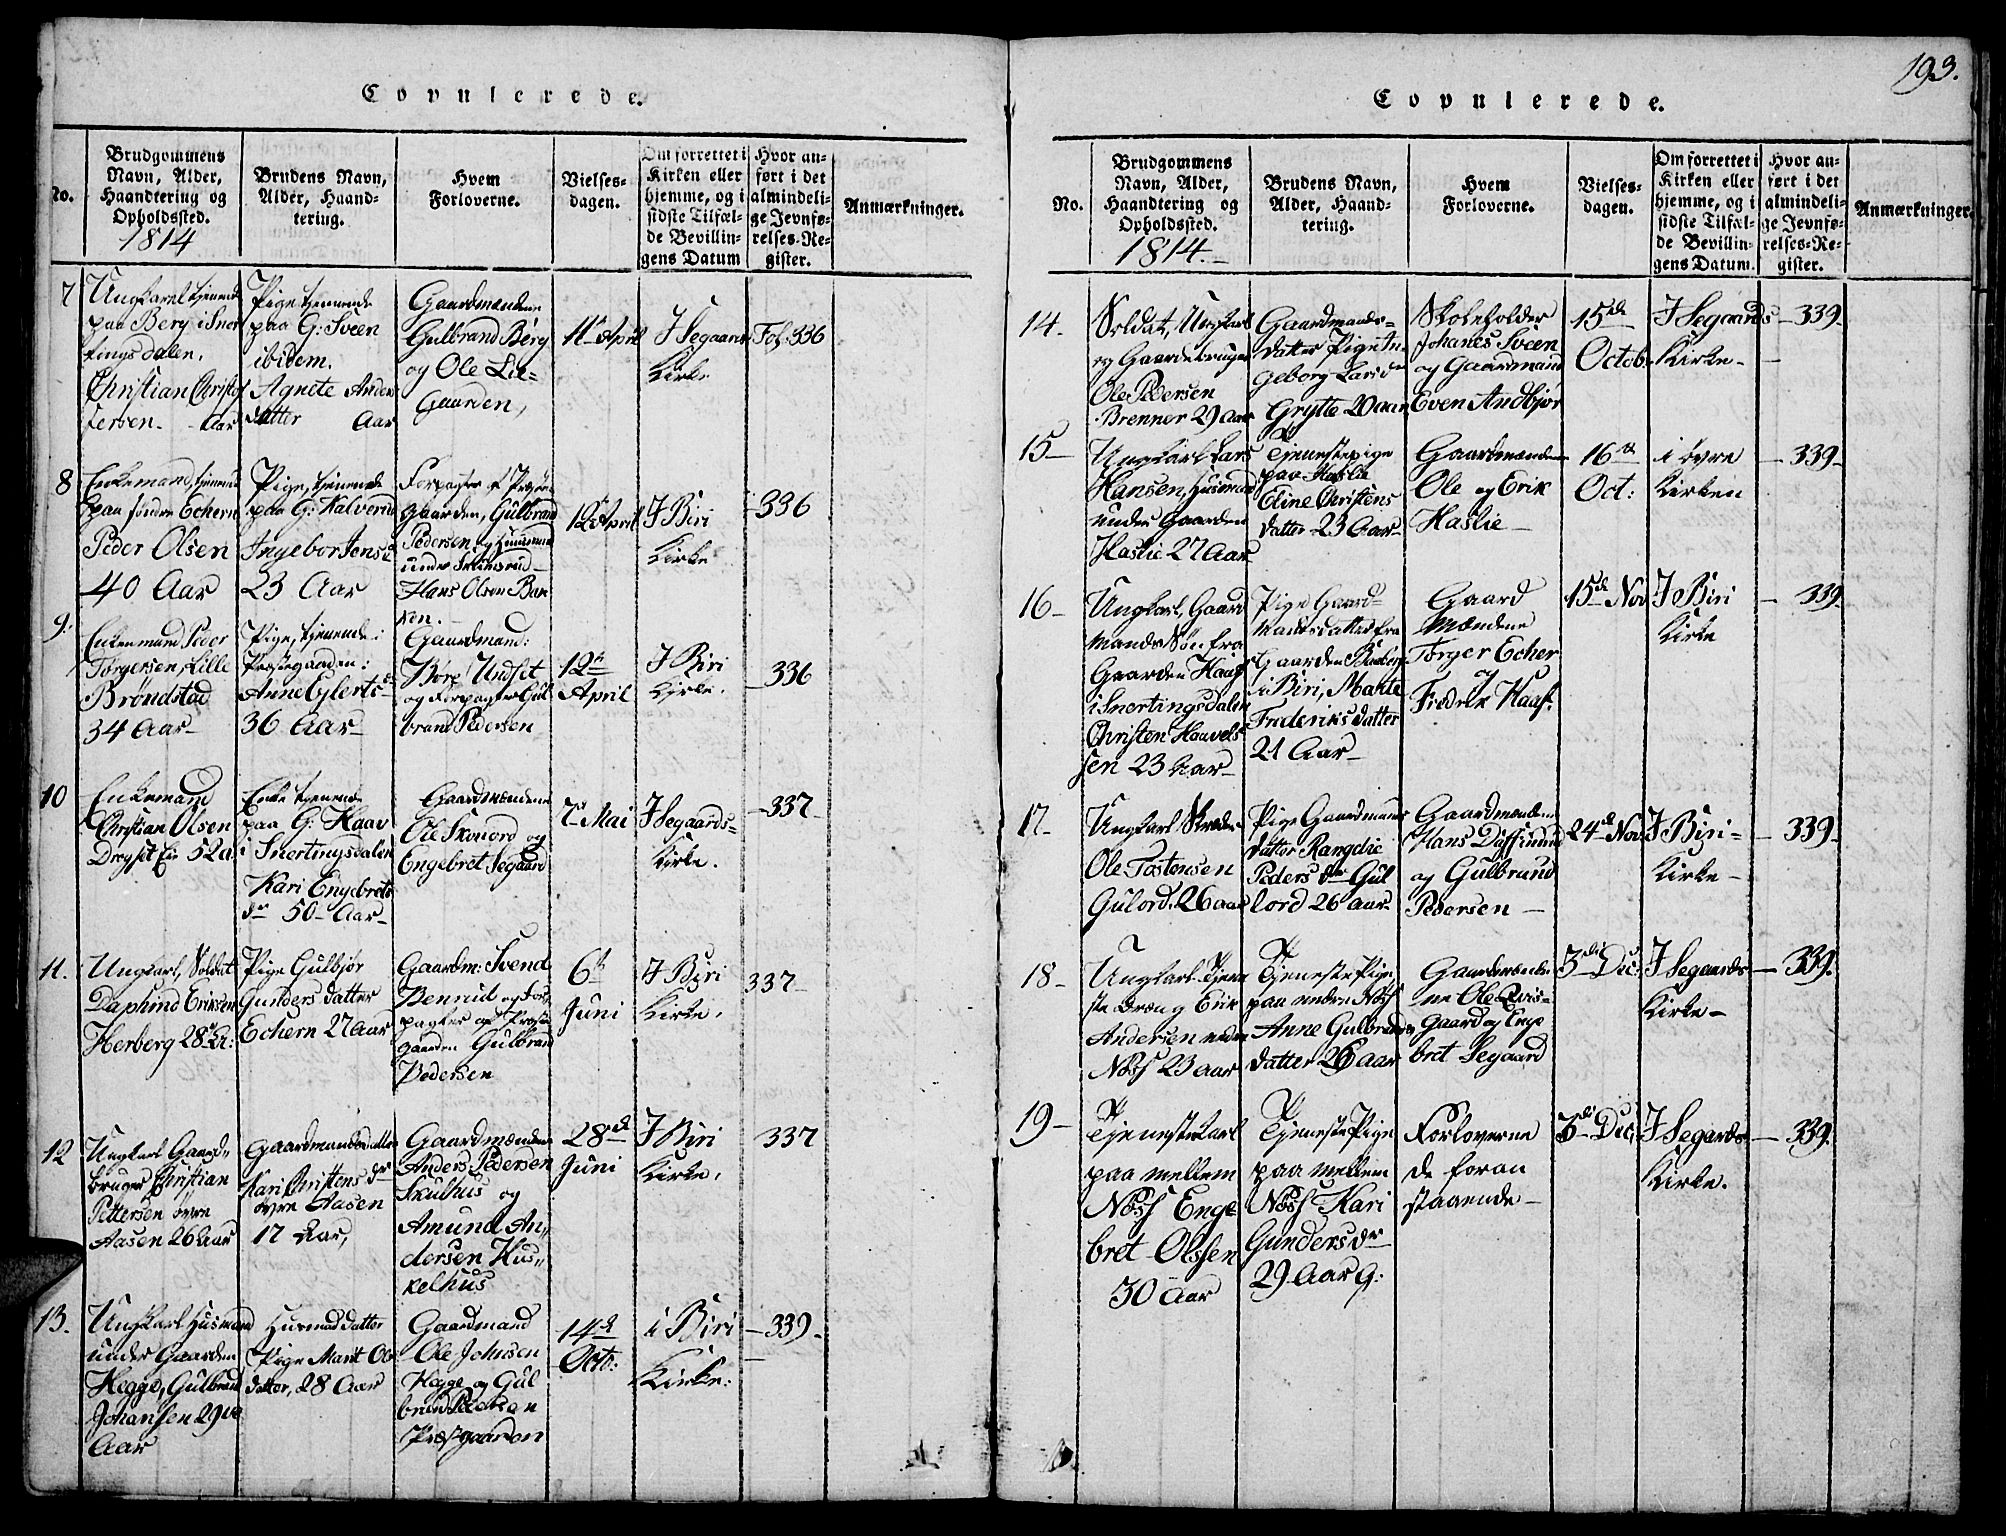 Copulerede.
No.
Brudgommens
Navn, Alder,
Haandtering og
Opholdssted.
1814
Brudens Navn,
Alder, Haand-
tering.
Hvem
Forloverne.
Vielses-
dagen.
Om forrettet i
Kirken eller
hjemme, og i
sidste Tilfæl-
de Bevillin-
gens Datum
Hvor an-
ført i det
almindeli-
ge Jevnfø-
relses-Re-
gister.
Anmærkninger.
7
Ungkarl tjenende
paa Berg i Sner
tingsdalen.
Christian Christof
fersen - Aar
Pige tjenende
paa G: Sveen
ibidem.
Agnete Anders
datter Aar
Gaardmændene
Gulbrand Berg
og Ole Lie-
Gaarden,
11te April
I Segaards
Kirke
Fol: 336
8
Enkemand, tjenende
paa søndre Echern
Peder Olsen
40 Aar
Pige, tjenende
paa G: Kalverud
Ingebor Jens d
23 Aar
Forpagter af Præste
gaarden, Gulbrand
Pedersen, og Huusmand
under
Hans Olsen Bak
ken.
12te April
I Biri
Kirke
336
9.
Enkemand Peder
Torgersen, Lille
Brøndstad
34 Aar
Pige, tjenende i
Præstegaarden:
Anne Eylerts d
36 Aar
Gaardmand:
Børe Undset
og Forpagter Gul
brand Pedersen
12te
April
I Biri
Kirke.
336
10
Enkemand
Christian Olsen
Dregset Eie 52 a:
Enke tjenende
paa G: Haav
i Snertingsdalen
Kari Engebrets
dr 50 Aar
Gaardmændene
Ole Skonord og
Engebret Segaard
7de Mai
I Segaards-
Kirke.
337
11.
Ungkarl, Soldat
Daphind Eriksen
Herberg 28 A:
Pige Gulbjør
Gunders datter
Echern 27 Aar
Gaardm: Svend
Benrud og For
pagter af Præste
gaarden Gulbrand
Pedersen
6te
Juni
I Biri
Kirke,
337
12
Ungkarl Gaard-
bruger Christian
Pettersen øvre
Aasen 26 Aar
Gaardmandsdatter
Kari Christens dr
øvre Aasen
17 Aar,
Gaardmændene
Anders Pedersen
Skulhus og
Amund An-
dersen Hus-
kelhus
28de
Juni
I Biri
Kirke,
337
13.
Ungkarl Husmand
under Gaarden
Hegge, Gulbrand
Johansen 29
Aar
Husmands datter
Pige Marit Ols
datter, 28 Aar
Gaardmand
Ole Johnsen
Hegge og Gul
brand Pedersen
Præstgaarden
14de
Octo:
i Biri
Kirke:
339.
193.
Copulerede.
No.
Brudgommens
Navn, Alder,
Haandtering og
Opholdssted.
1814.
Brudens Navn,
Alder, Haand-
tering.
Hvem
Forloverne.
Vielses-
dagen.
Om forrettet i
Kirken eller
hjemme, og i
sidste Tilfæl-
de Bevillin-
gens Datum.
Hvor an-
ført i det
almindeli-
ge Jevnfø-
relses-Re-
gister.
Anmærkninger.
14.
Soldat, Ungkarl
og Gaardebruger
Ole Pedersen
Brenner 29 Aar
Gaardmands-
datter Pige In-
geborg Lars dr
Grytte 20 aar
Skoleholder
Johanes Sveen
og Gaardmand
Even Andbjør
15de
Octob:
I Segaards
Kirke
339
15
Ungkarl Lars
Hansen, Husmand
under Gaarden
Haslie 27 Aar
Tjenestepige
paa Haslie
Eline Christens
datter 23 Aar
Gaardmændene
Ole og Erik
Haslie
16de
Oct:
i øvre
Kirken
339
16
Ungkarl, Gaard
mands Søn fra
Gaarden Haaf
i Snertingsdalen
Christen Haavels
sen 23 Aar
Pige Gaard-
mandsdatter fra
Gaarden
i Biri, Marte
Frederiks datter
21 Aar
Gaard
Mændene
Torger Echer
og
Fredrik Haaf.
15de Nov
I Biri
Kirke
339
17
Ungkarl Skræder
Ole Tostensen
Gulord. 26 aar
Pige Gaardmands
datter Rangdie
Peders dr Gul
lord 26 aar
Gaardmændene
Hans Dassinrud
og Gulbrand
Pedersen
24de Nov
I Biri-
Kirke
339
18
Ungkarl Tjene
ste Dreng Erik
Andersen nedre
Næss 23 Aar
Tjeneste Pige
paa nedre Næss
Anne Gulbrands
datter 26 aar
Gaardmænde
ne Ole Qvis-
gaard og Enge
bret Segaard
3die Dec:
I Segaards
Kirke
339.
19
Tjenestekarl
paa mellem
Næss Enge
bret Olssen
30 Aar
Tjeneste Pige
paa mellem
Næss Kari
Gunders dr
29 Aar g:
Forloverne
de foran
staaende
3die Dec:
I Segards
Kirke.
339.